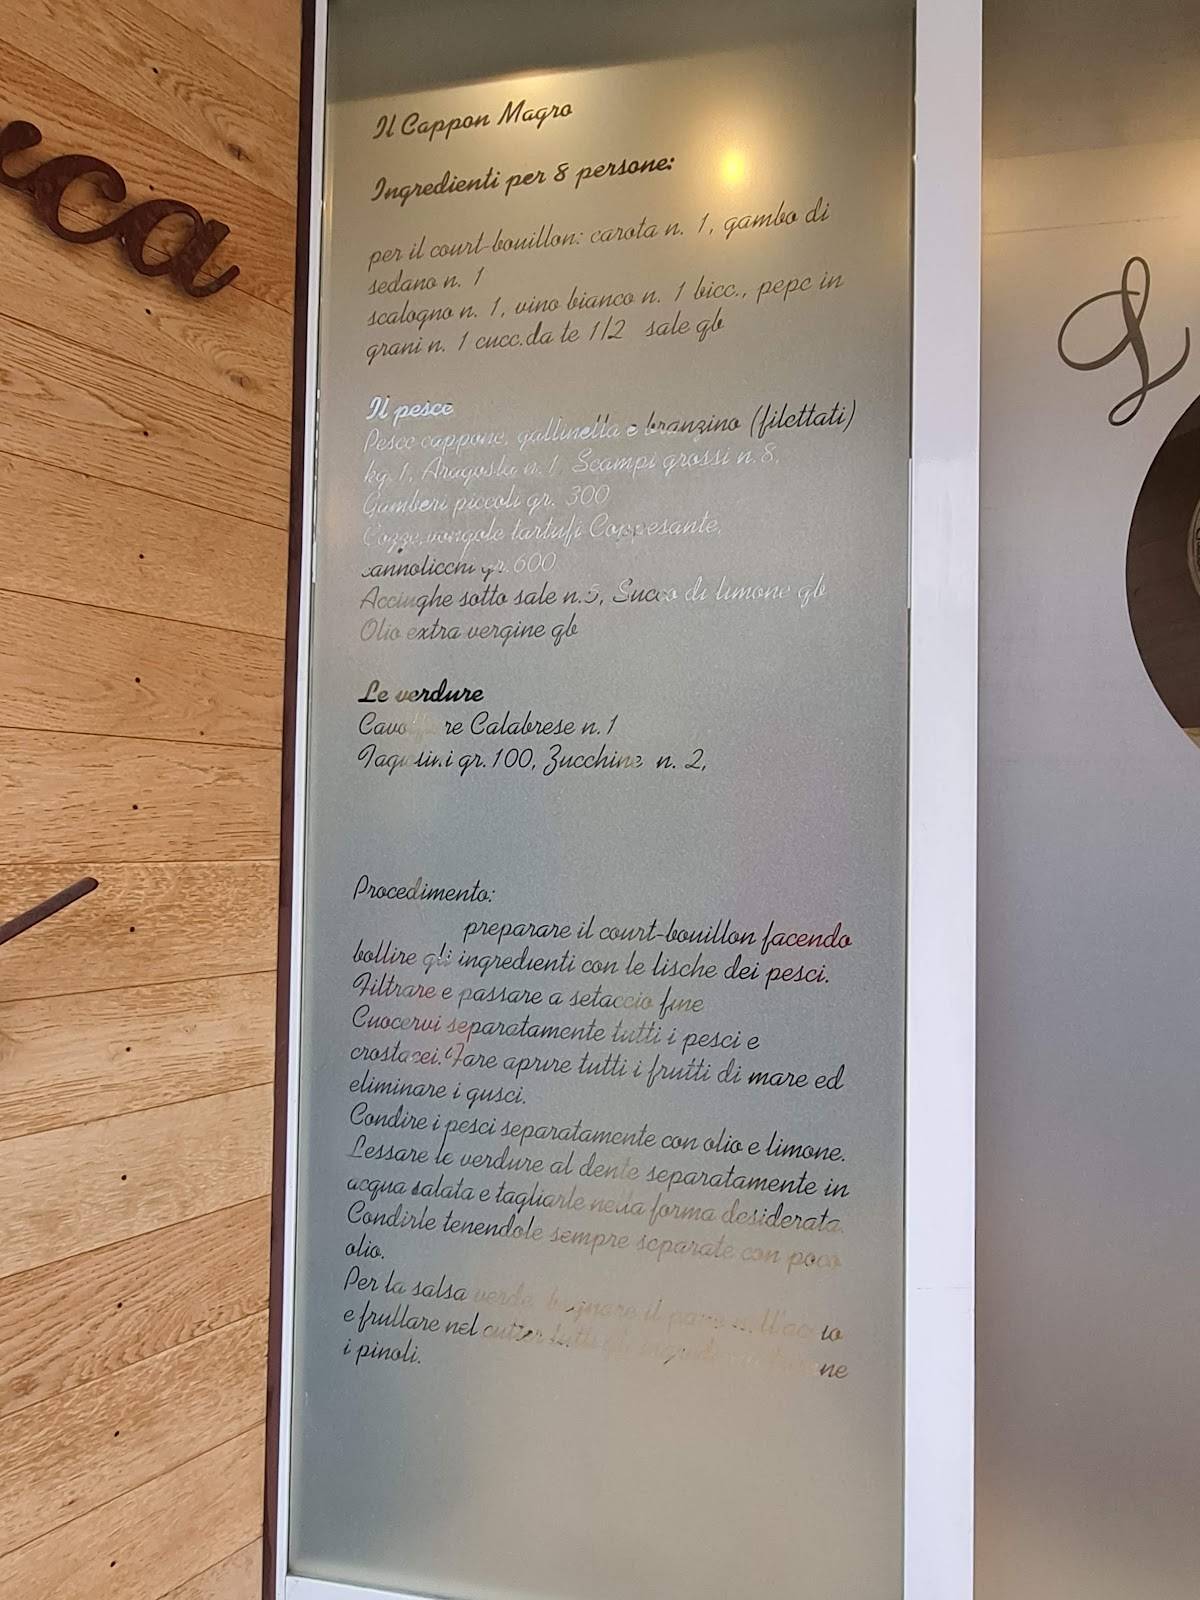 ca
Il Cappon Magro
Ingredienti per 8 persone:
per il court-bouillon: carota n. 1, gambo di
sedano n. 1
scalogno n. 1, vino bianco n. 1 bicc., pepe in
grani n. 1 cucc.da te 1/2 sale qb
Il pesce
Pesce cappone, gallinella e branzino (filettati)
kg.1, Aragosta n.1, Scampi grossi n.8,
Gamberi piccoli gr. 300
Cozze,vongole tartufi Coppesante,
cannolicchi gr.600
Acciughe sotto sale n.5, Succo di limone qb
Olio extra vergine qb
Le verdure
Cavolfiore Calabrese n.1
Fagiolini gr.100, Zucchine n. 2,
Procedimento:
preparare il court-bouillon facendo
bollire gli ingredienti con le lische dei pesci.
Filtrare e passare a setaccio fine
Cuocervi separatamente tutti i pesci e
crostacei.Fare aprire tutti i frutti di mare ed
eliminare i gusci.
Condire i pesci separatamente con olio e limone.
Lessare le verdure al dente separatamente in
acqua salata e tagliarle nella forma desiderata.
Condirle tenendole sempre separate con poco
olio.
Per la salsa verde, bagnare il pane
e frullare nel cutter tutti gli
i pinoli.